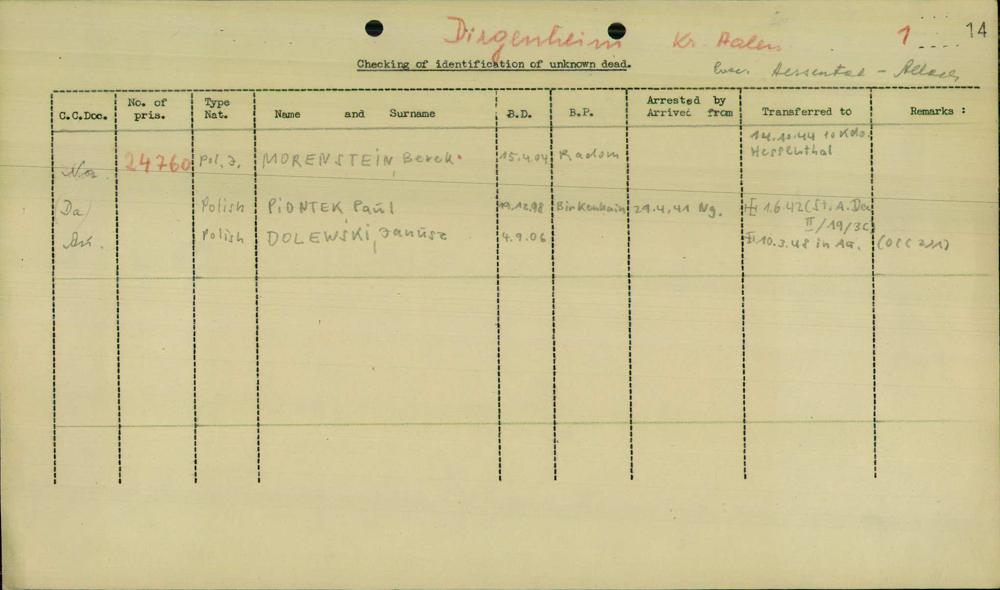 Dirgenheim Kr. Aalen 1 .... 14
Checking of identification of unknown dead.
Hessental - Allach
C.C.Doc. No. of pris. Type Nat. Name and Surname B.D. B.P. Arrested by Arrived from Transferred to Remarks :
Na. 24760 Pol. J. MORENSTEIN, Berek. 15.4.04 Radom 14.10.44 to Kdo. Hessenthal
(Da) Polish PIONTEK, Paul 19.12.98 Birkenhain 29.4.41 Ng. 1.6.42 (St. A. Da II/19/30)
Polish DOLEWSKI, Janusz 4.9.06 10.3.45 in